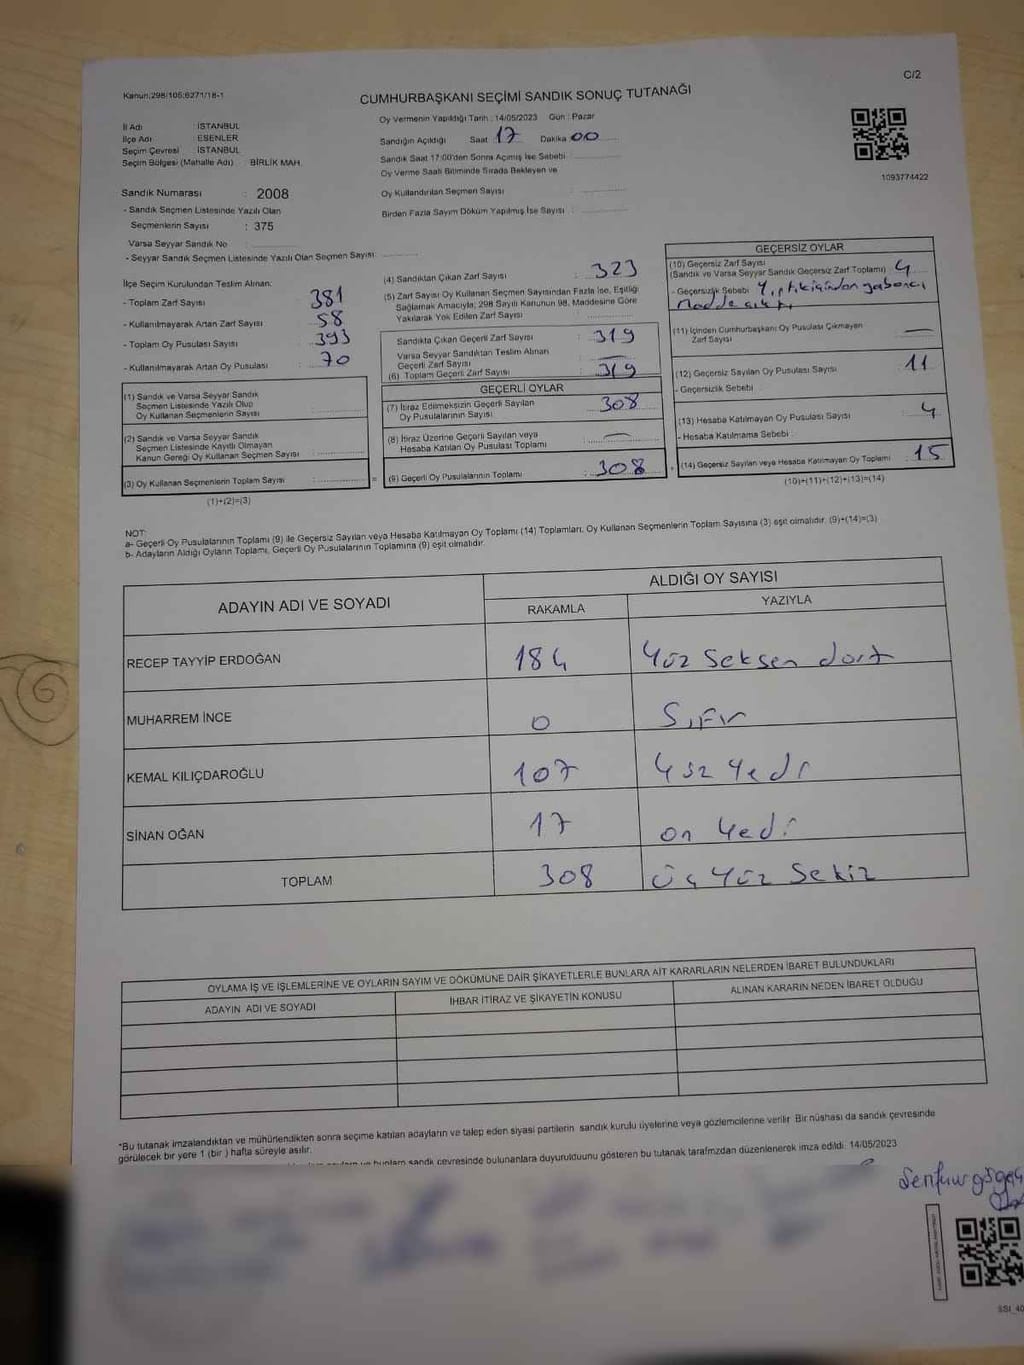 C/2
Kanun:298/105;6271/18-1
CUMHURBAŞKANI SEÇİMİ SANDIK SONUÇ TUTANAĞI
İl Adı : İSTANBUL
İlçe Adı : ESENLER
Seçim Çevresi : İSTANBUL
Seçim Bölgesi (Mahalle Adı) : BİRLİK MAH.
Sandık Numarası : 2008
- Sandık Seçmen Listesinde Yazılı Olan
Seçmenlerin Sayısı : 375
Varsa Seyyar Sandık No :
- Seyyar Sandık Seçmen Listesinde Yazılı Olan Seçmen Sayısı
Oy Vermenin Yapıldığı Tarih : 14/05/2023 Gün : Pazar
Sandığın Açıldığı Saat 17 Dakika 00
Sandık Saat 17:00'den Sonra Açılmış İse Sebebi :
Oy Verme Saati Bitiminde Sırada Bekleyen ve
Oy Kullandırılan Seçmen Sayısı :
Birden Fazla Sayım Döküm Yapılmış İse Sayısı :
1093774422
İlçe Seçim Kurulundan Teslim Alınan:
- Toplam Zarf Sayısı : 381
- Kullanılmayarak Artan Zarf Sayısı : 58
- Toplam Oy Pusulası Sayısı : 393
- Kullanılmayarak Artan Oy Pusulası : 70
(1) Sandık ve Varsa Seyyar Sandık
Seçmen Listesinde Yazılı Olup
Oy Kullanan Seçmenlerin Sayısı :
(2) Sandık ve Varsa Seyyar Sandık
Seçmen Listesinde Kayıtlı Olmayan
Kanun Gereği Oy Kullanan Seçmen Sayısı :
(3) Oy Kullanan Seçmenlerin Toplam Sayısı :
(1)+(2)=(3)
(4) Sandıktan Çıkan Zarf Sayısı : 323
(5) Zarf Sayısı Oy Kullanan Seçmen Sayısından Fazla İse, Eşitliği
Sağlamak Amacıyla; 298 Sayılı Kanunun 98. Maddesine Göre
Yakılarak Yok Edilen Zarf Sayısı :
Sandıkta Çıkan Geçerli Zarf Sayısı : 319
Varsa Seyyar Sandıktan Teslim Alınan
Geçerli Zarf Sayısı : —
(6) Toplam Geçerli Zarf Sayısı : 319
GEÇERLİ OYLAR
(7) İtiraz Edilmeksizin Geçerli Sayılan
Oy Pusulalarının Sayısı : 308
(8) İtiraz Üzerine Geçerli Sayılan veya
Hesaba Katılan Oy Pusulası Toplamı : —
= (9) Geçerli Oy Pusulalarının Toplamı : 308
GEÇERSİZ OYLAR
(10) Geçersiz Zarf Sayısı
(Sandık ve Varsa Seyyar Sandık Geçersiz Zarf Toplamı) : 4
- Geçersizlik Sebebi yabancı
madde
(11) İçinden Cumhurbaşkanı Oy Pusulası Çıkmayan
Zarf Sayısı : —
(12) Geçersiz Sayılan Oy Pusulası Sayısı : 11
- Geçersizlik Sebebi :
(13) Hesaba Katılmayan Oy Pusulası Sayısı : 4
- Hesaba Katılmama Sebebi :
+ (14) Geçersiz Sayılan veya Hesaba Katılmayan Oy Toplamı : 15
(10)+(11)+(12)+(13)=(14)
NOT:
a- Geçerli Oy Pusulalarının Toplamı (9) ile Geçersiz Sayılan veya Hesaba Katılmayan Oy Toplamı (14) Toplamları, Oy Kullanan Seçmenlerin Toplam Sayısına (3) eşit olmalıdır. (9)+(14)=(3)
b- Adayların Aldığı Oyların Toplamı, Geçerli Oy Pusulalarının Toplamına (9) eşit olmalıdır.
ADAYIN ADI VE SOYADI
ALDIĞI OY SAYISI
RAKAMLA YAZIYLA
RECEP TAYYİP ERDOĞAN 184 Yüz Seksen dört
MUHARREM İNCE 0 Sıfır
KEMAL KILIÇDAROĞLU 107 Yüz Yedi
SİNAN OĞAN 17 on Yedi
TOPLAM 308 Üç Yüz Sekiz
OYLAMA İŞ VE İŞLEMLERİNE VE OYLARIN SAYIM VE DÖKÜMÜNE DAİR ŞİKAYETLERLE BUNLARA AİT KARARLARIN NELERDEN İBARET BULUNDUKLARI
ADAYIN ADI VE SOYADI İHBAR İTİRAZ VE ŞİKAYETİN KONUSU ALINAN KARARIN NEDEN İBARET OLDUĞU
*Bu tutanak imzalandıktan ve mühürlendikten sonra seçime katılan adayların ve talep eden siyasi partilerin sandık kurulu üyelerine veya gözlemcilerine verilir. Bir nüshası da sandık çevresinde
görülecek bir yere 1 (bir ) hafta süreyle asılır.
sandık çevresinde bulunanlara duyurulduunu gösteren bu tutanak tarafmzdan düzenlenerek imza edildi. 14/05/2023